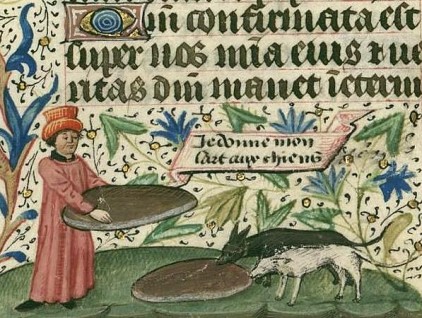 Qm̄ confirmata est
super nos mīa eius ⁊ ue
ritas dn̄i manet ī eternu
Je donne mon
aux chiens